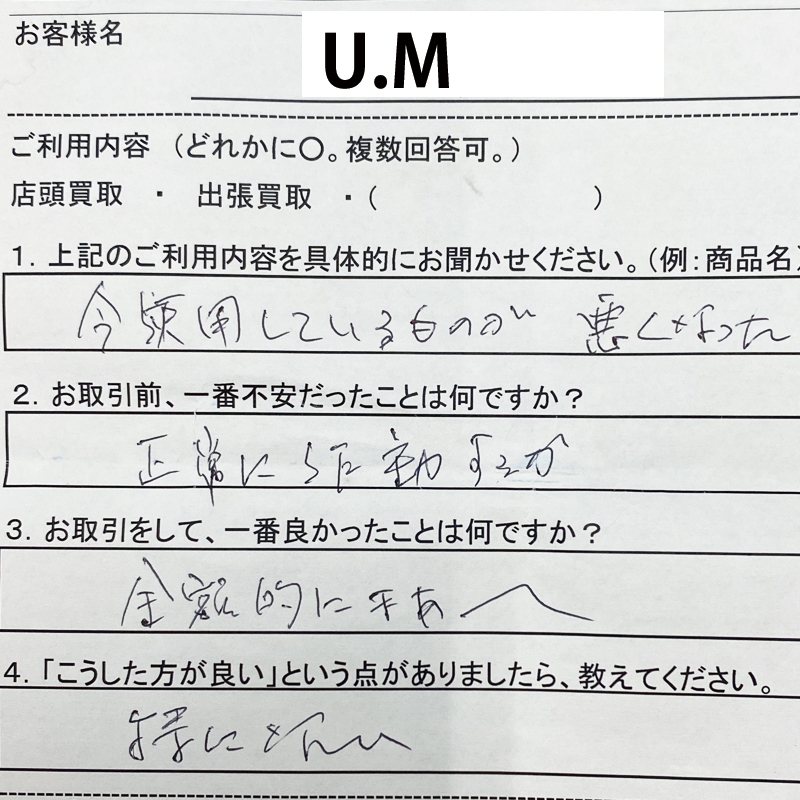 お客様名
U.M
ご利用内容 （どれかに〇。複数回答可。）
店頭買取 ・ 出張買取 ・（ ）
1．上記のご利用内容を具体的にお聞かせください。（例：商品名）
今使用しているものが 悪くなった
2．お取引前、一番不安だったことは何ですか？
正常に稼動するか
3．お取引をして、一番良かったことは何ですか？
金額的に
4．「こうした方が良い」という点がありましたら、教えてください。
様に